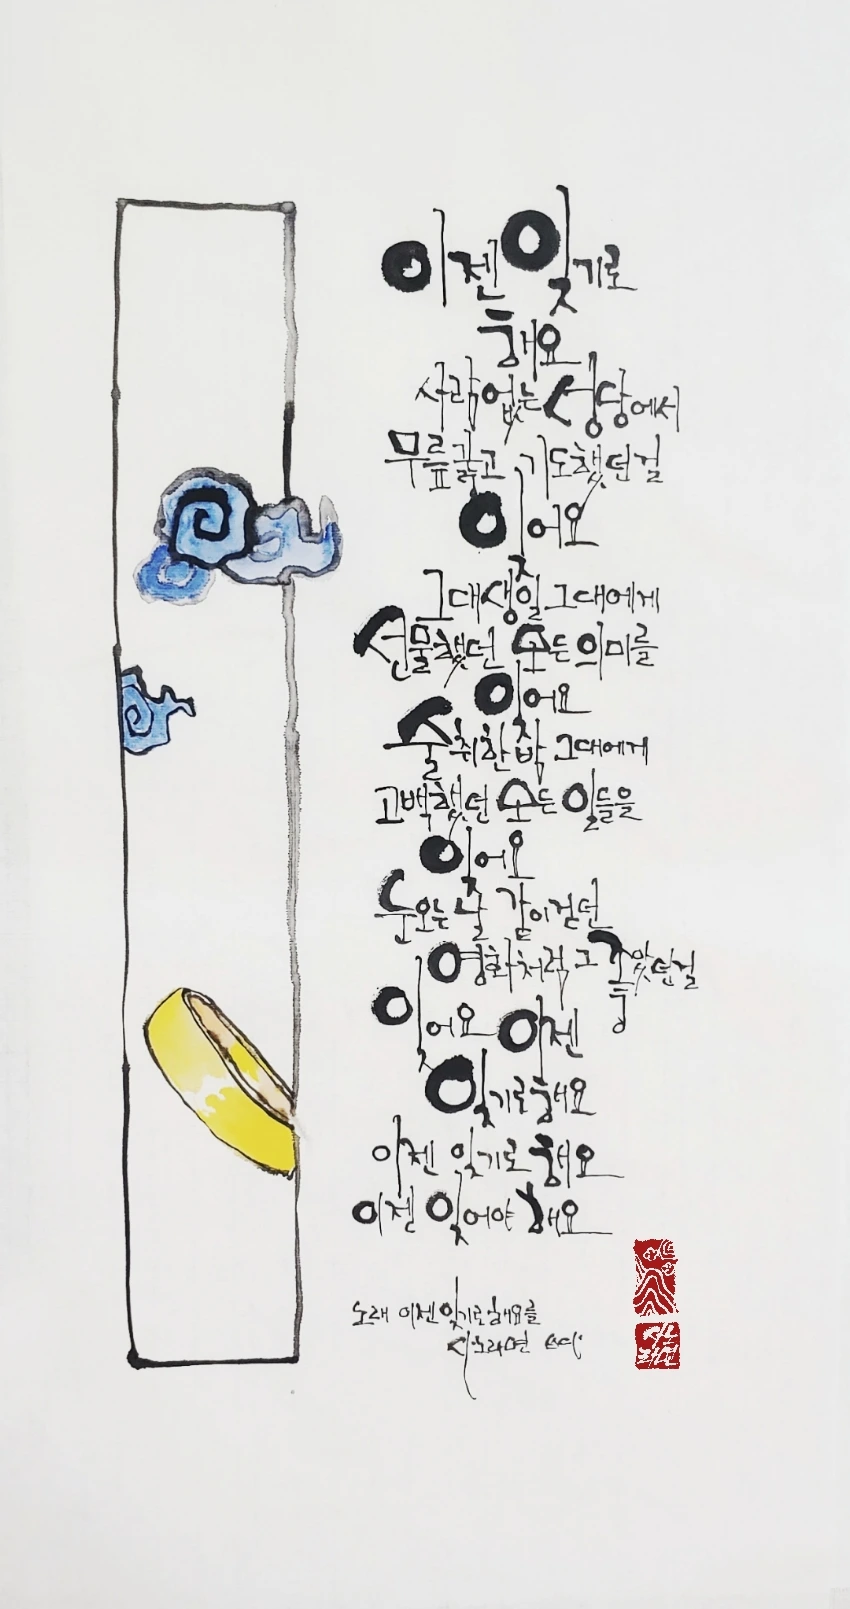 이젠 잊기로
해요
사람없는 성당에서
무릎꿇고 기도했던걸
잊어요
그대생일 그대에게
선물했던 모든의미를
잊어요
술취한밤 그대에게
고백했던 모든 일들을
잊어요
눈오는 날 같이걷던
영화처럼 그 좋았던걸
잊어요 이젠
잊기로해요
이젠 잊기로 해요
이젠 잊어야 해요
노래 이젠잊기로해요를